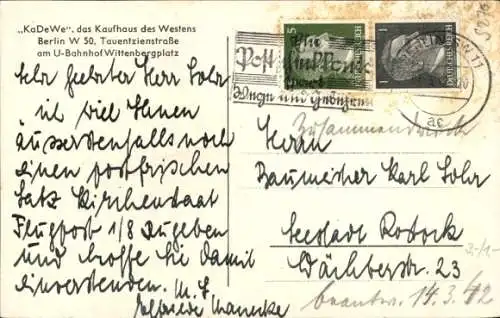 „KaDeWe“, das Kaufhaus des Westens
Berlin W 50, Tauentzienstraße
am U-Bahnhof Wittenbergplatz
Sehr geehrter Herr Sohr
ich viel Ihnen
äusserstenfalls noch
einen postfrischen
Satz Kirchenstaat
Flugpost 1/8 zugeben
und hoffe Sie damit
einverstanden. M. f.
Elfriede
Ein
Postscheckkonto
spart
Wege und Gebühren
5
DEUTSCHES REICH
1
DEUTSCHES REICH
BERLIN SW 11
ac
Herrn
Baumeister Karl Sohr
Seestadt Rostock
Wächterstr. 23
beantw. 14.3.42